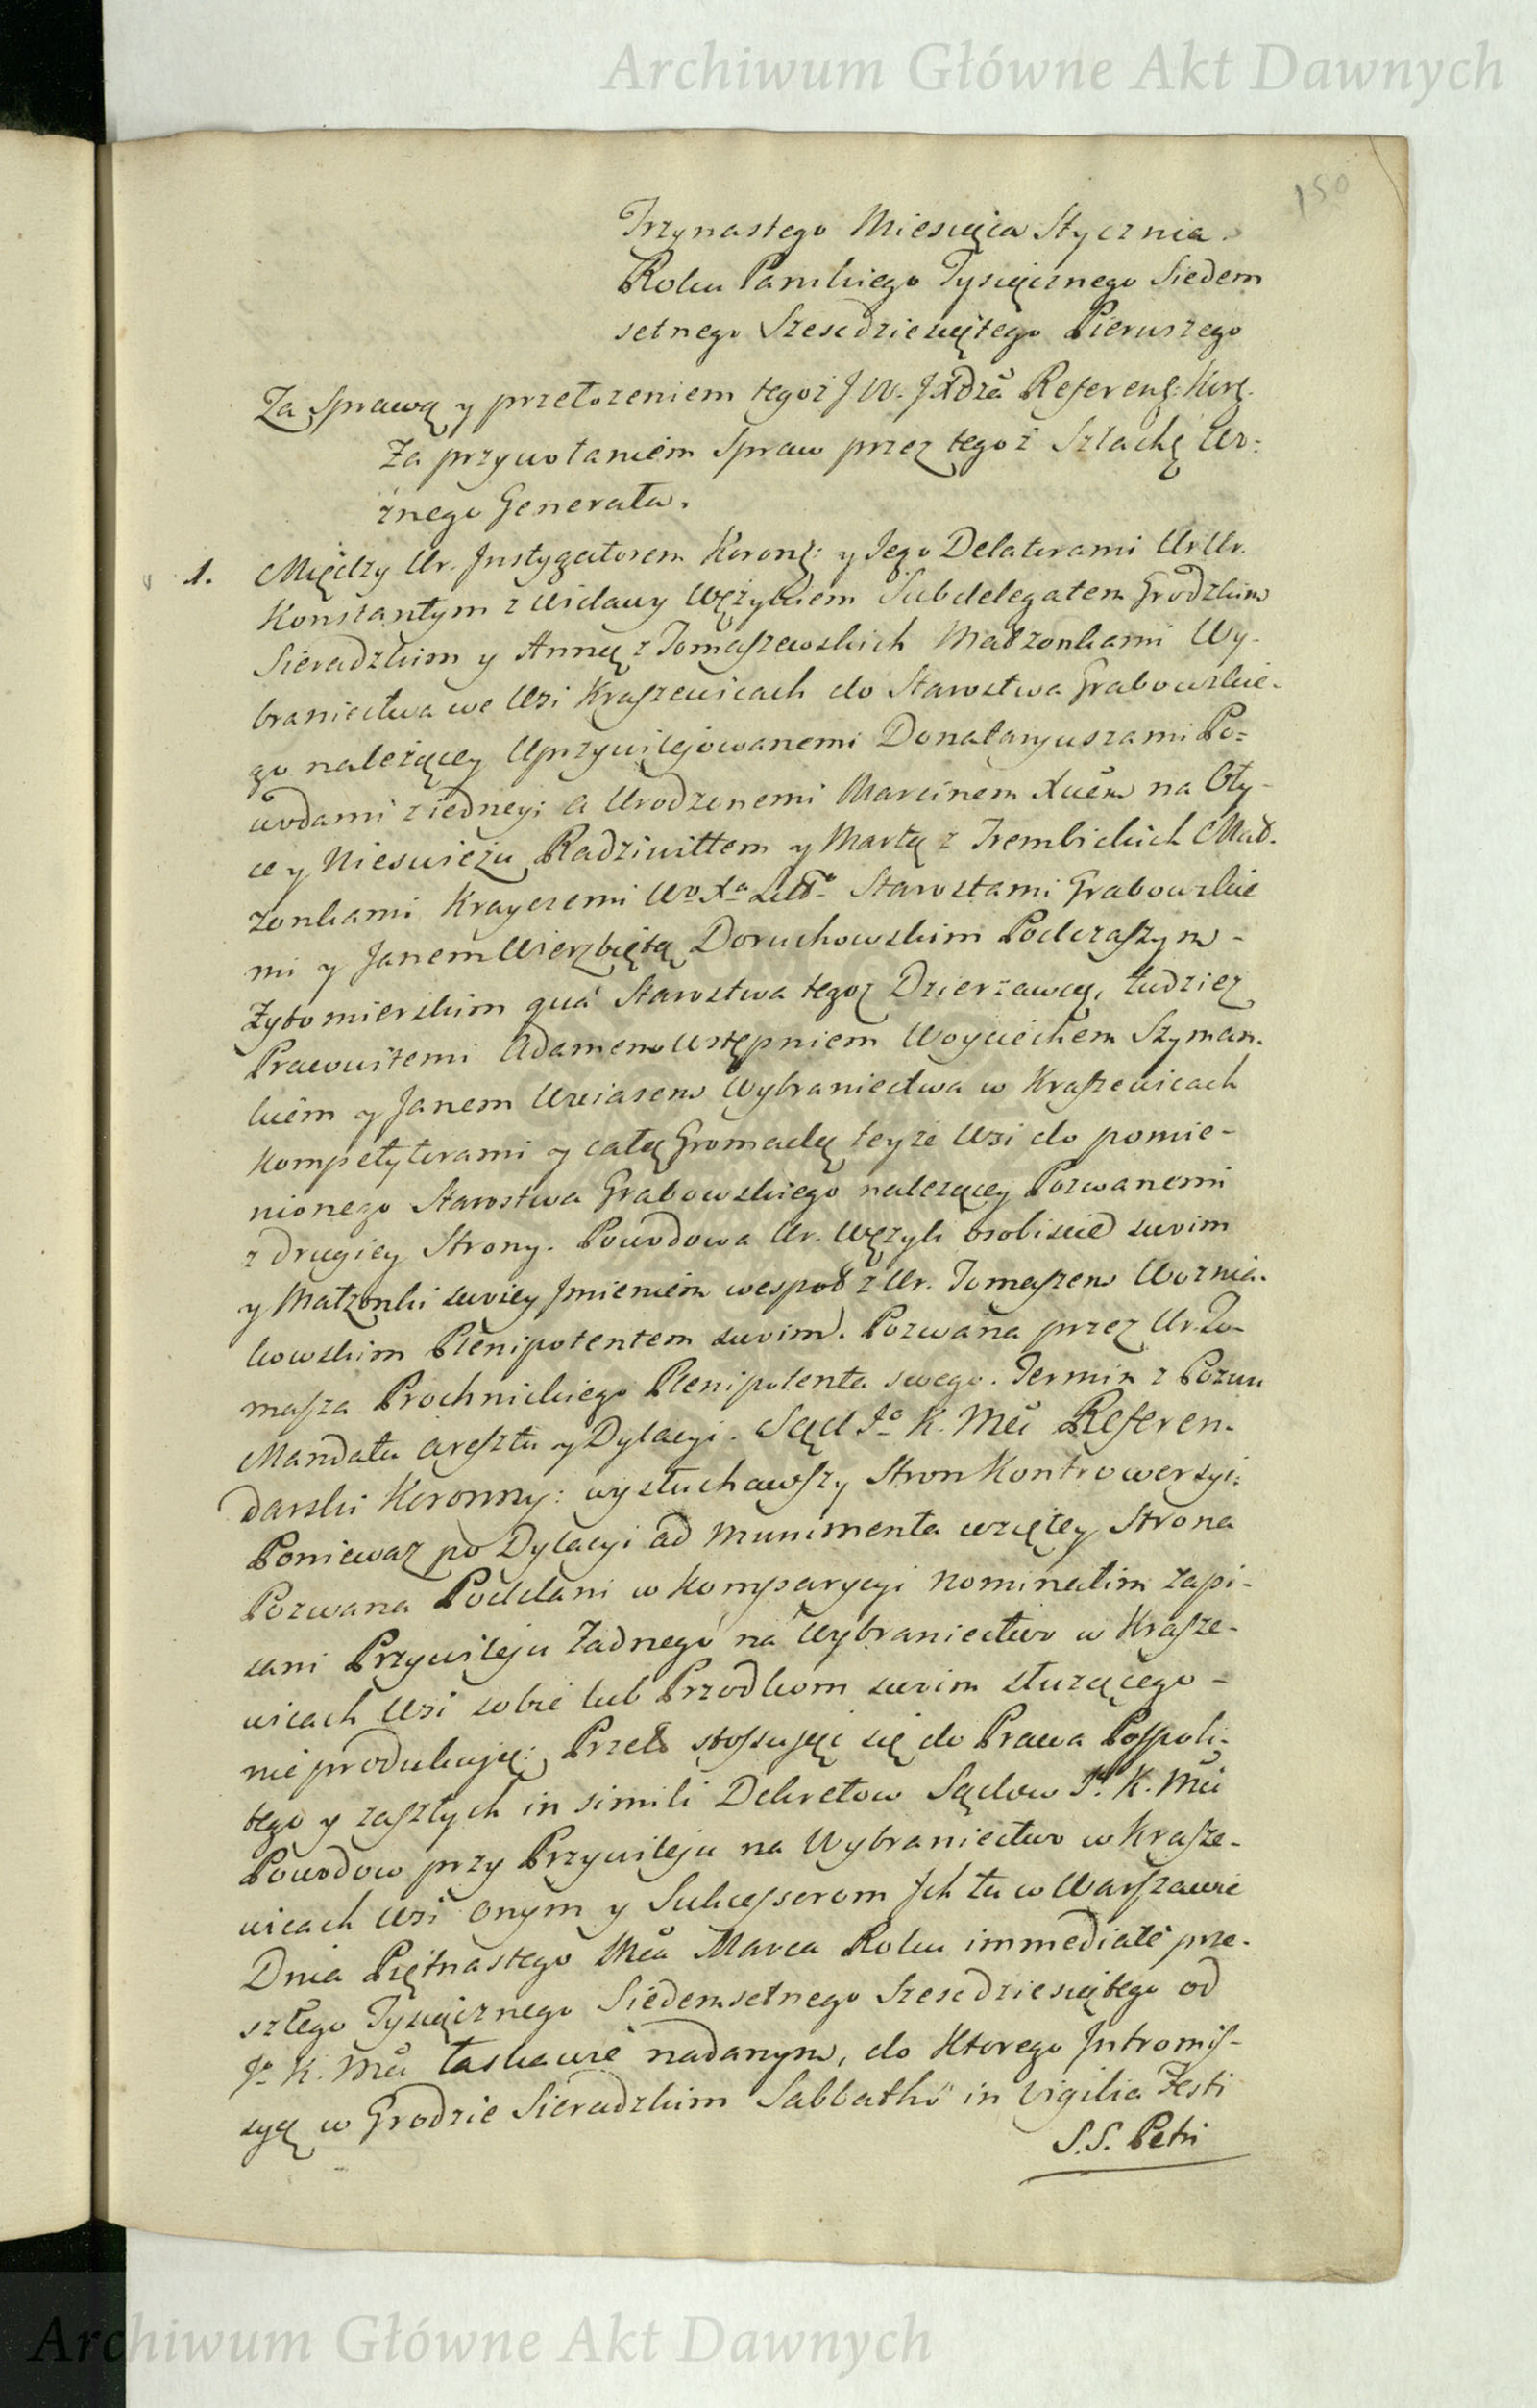 Archiwum Główne Akt Dawnych
150
Trzynastego Miesiąca Stycznia.
Roku Pańskiego Tysiącznego Siedem
setnego Szescdziesiątego Pierwszego
Za Sprawą y przełożeniem tegoż JW. JXdza Referend: Kor:
Za przywołaniem Spraw przez tegoż Szlachę Wo:
źnego Generała.
1. Między Ur. Instygatorem Koron: y Jego Delatorami Ur Ur.
Konstantym z Widawy Wężykiem Subdelegatem Grodzkim
Sieradzkim y Anną z Tomaszewskich Małżonkami Wy-
braniectwa we Wsi Kraszewicach do Starostwa Grabowskie-
go należącey Uprzywilejowanemi Donataryuszami Po=
wodami z iedney; a Urodzonemi Marcinem Xciem na Oły-
ce y Nieswieżu Radziwiłłem y Martą z Trembickich Mał-
żonkami Krayczemi Wo Xa Litto Starostami Grabowskie
mi y Janem Wierzbiętą Doruchowskim Podczaszym -
Żytomierskim quá Starostwa tegoż Dzierżawcą, tudziez
Pracowitemi Adamem Wstępniem Woyciechem Szyman-
kiem y Janem Wziasem Wybraniectwa w Kraszewicach
Kompetytorami y całą Gromadą teyże Wsi do pomie-
nionego Starostwa Grabowskiego należącey Pozwanemi
z drugiey Strony. Powodowa Ur. Wężyk osobiscie swoim
y Małżonki swoiey Jmieniem wespoł z Ur. Tomaszem Woznia-
kowskim Plenipotentem swoim. Pozwana przez Ur. To-
masza Prochnickiego Plenipotenta swego. Termin z Pozwu
Mandatu Aresztu y Dylacyi. Sąd Jo K. Mci Referen-
darski Koronny: wysłuchawszy Stron Kontrowersyi:
Ponieważ po Dylacyi ad Munimenta wziętey Strona
Pozwana Poddani w Komparycyi nominatim zapi-
sani Przywileju Żadnego na Wybraniectwo w Krasze-
wicach Wsi sobie lub Przodkom swoim służącego -
nie produkują: Przeto stosując się do Prawa Pospoli-
tego y zaszłych in simili Dekretow Sądow Jo K. Mci
Powodow przy Przywileju na Wybraniectwo w Krasze-
wicach Wsi Onym y Sukcessorom Jch tu w Warszawie
Dnia Piętnastego Mca Marca Roku immediate prze-
szłego Tysiącznego Siedemsetnego Szescdziesiątego od
Jo K. Mci łaskawie nadanym, do Ktorego Intromis-
syą w Grodzie Sieradzkim Sabbatho in Vigilia Festi
S.S. Petri
Archiwum Główne Akt Dawnych